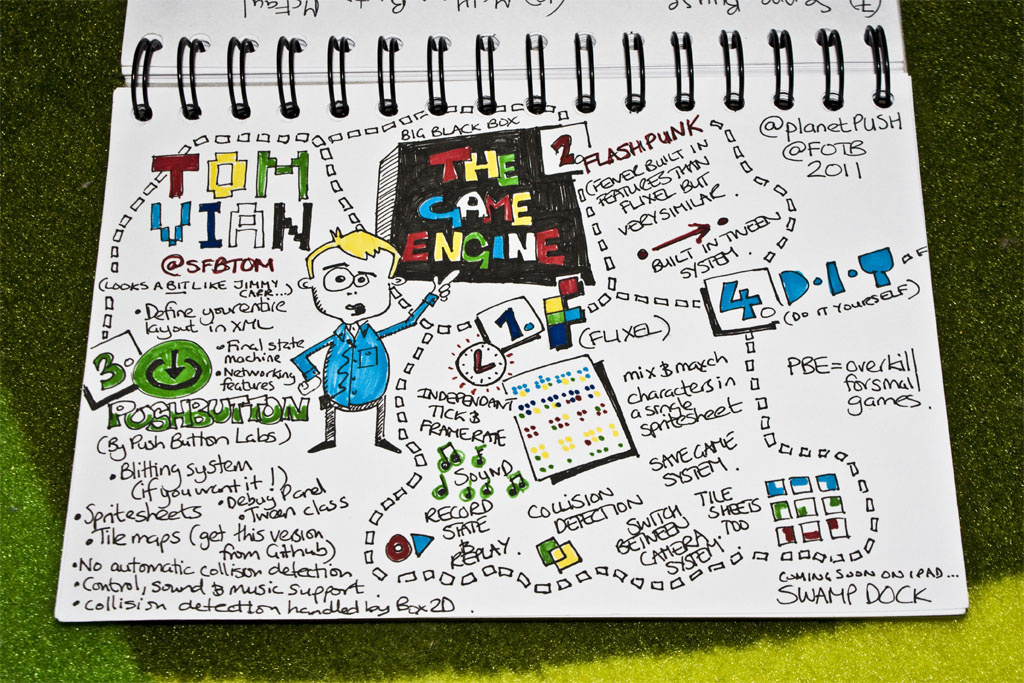 TOM
VIAN
@SFBTOM
(LOOKS A BIT LIKE JIMMY
CARR...)
BIG BLACK BOX
THE
GAME
ENGINE
@planetPUSH
@FOTB
2011
1. F
(FLIXEL)
INDEPENDANT
TICK &
FRAMERATE
mix & match
characters in
a single
spritesheet
SOUND
SAVE GAME
SYSTEM.
RECORD
STATE
&
REPLAY.
COLLISION
DETECTION
SWITCH
BETWEEN
CAMERA
SYSTEM.
TILE
SHEETS
TOO
2. FLASHPUNK
(FEWER BUILT IN
FEATURES THAN
FLIXEL BUT
VERY SIMILAR.
BUILT IN TWEEN
SYSTEM.
3.
PUSHBUTTON
(By Push Button Labs)
• Define your entire
layout in XML
• Final state
machine
• Networking
features
• Blitting system
(if you want it!)
• Debug Panel
• Spritesheets
• Tween class
• Tile maps (get this version
from Github)
• No automatic collision detection
• Control, sound & music support.
• collision detection handled by Box 2D.
4. D.I.Y
(DO IT YOURSELF)
PBE = overkill
for small
games.
COMING SOON ON IPAD...
SWAMP DOCK